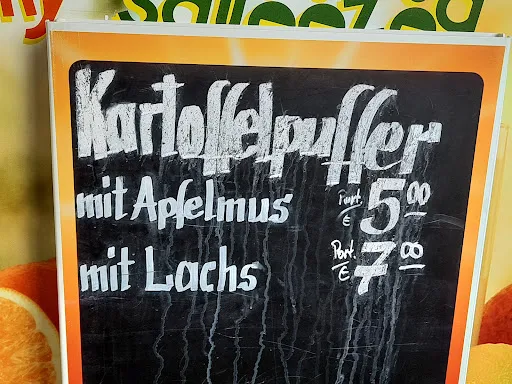 Kartoffelpuffer
mit Apfelmus Port. € 5.00
mit Lachs Port. € 7.00